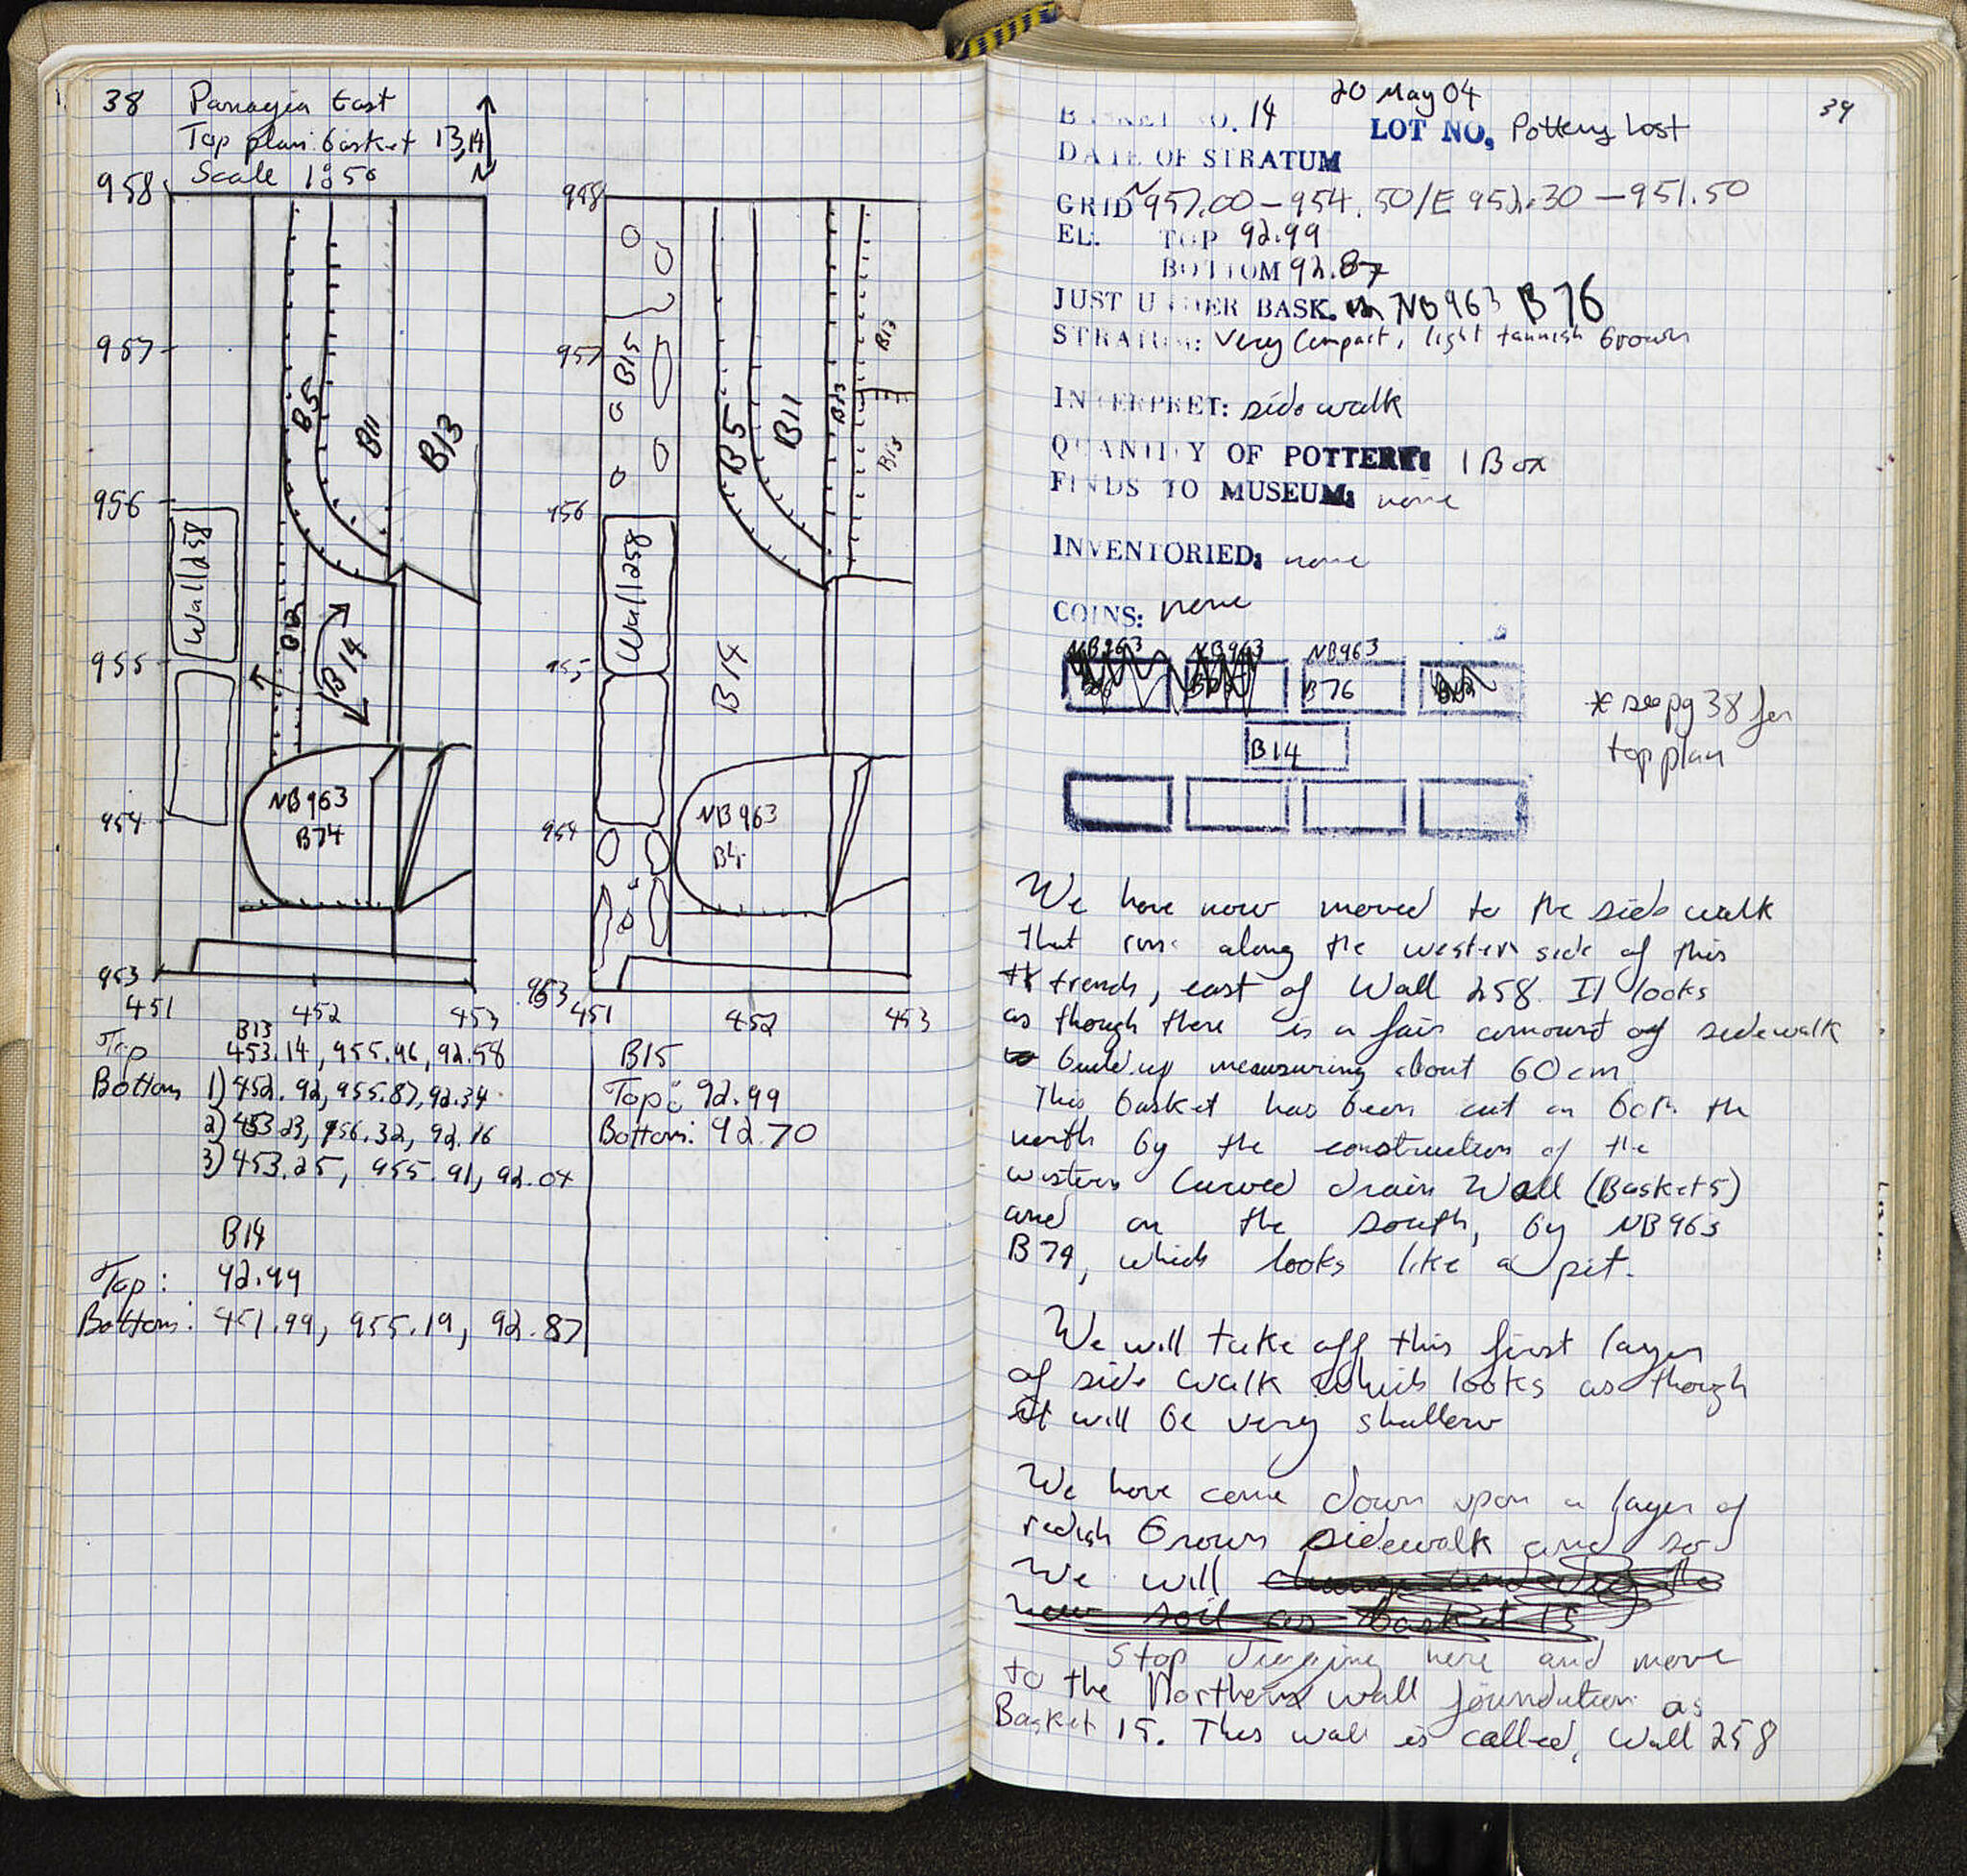 38 Panayia East
Top plan: basket 13,14
Scale 1:50
N
958
957
956
955
954
953
451 452 453
B5
B11
B13
Wall 258
B8
B14
NB963
B74
958
957
956
955
954
953
451 452 453
B15
B5
B11
B13
B13
B15
Wall 258
B14
NB963
B4
B13
Top 453.14, 955.96, 92.58
Bottom 1) 452.92, 955.87, 92.34
2) 453.23, 956.32, 92.16
3) 453.25, 955.91, 92.04
B14
Top: 92.99
Bottom: 451.99, 955.19, 92.87
B15
Top: 92.99
Bottom: 92.70
39
20 May 04
BASKET NO. 14 LOT NO. Pottery Lost
DATE OF STRATUM
GRID N957.00 - 954.50/E 952.30 - 951.50
EL: TOP 92.99
BOTTOM 92.87
JUST UNDER BASK. NB963 B76
STRATUM: Very compact, light tannish brown
INTERPRET: side walk
QUANTITY OF POTTERY: 1 Box
FINDS TO MUSEUM: none
INVENTORIED: none
COINS: none
NB963 NB963 NB963
B76
B14
* see pg 38 for
top plan
We have now moved to the side walk
that runs along the western side of this
trench, east of Wall 258. It looks
as though there is a fair amount of sidewalk
build up measuring about 60cm.
This basket has been cut on both the
north by the construction of the
western curved drain Wall (Basket 5)
and on the south, by NB963
B74, which looks like a pit.
We will take off this first layer
of side walk which looks as though
it will be very shallow
We have come down upon a layer of
redish brown sidewalk and so
we will change and dig the
new soil as basket 15
stop digging here and move
to the Northern wall foundation as
Basket 15. This wall is called, Wall 258